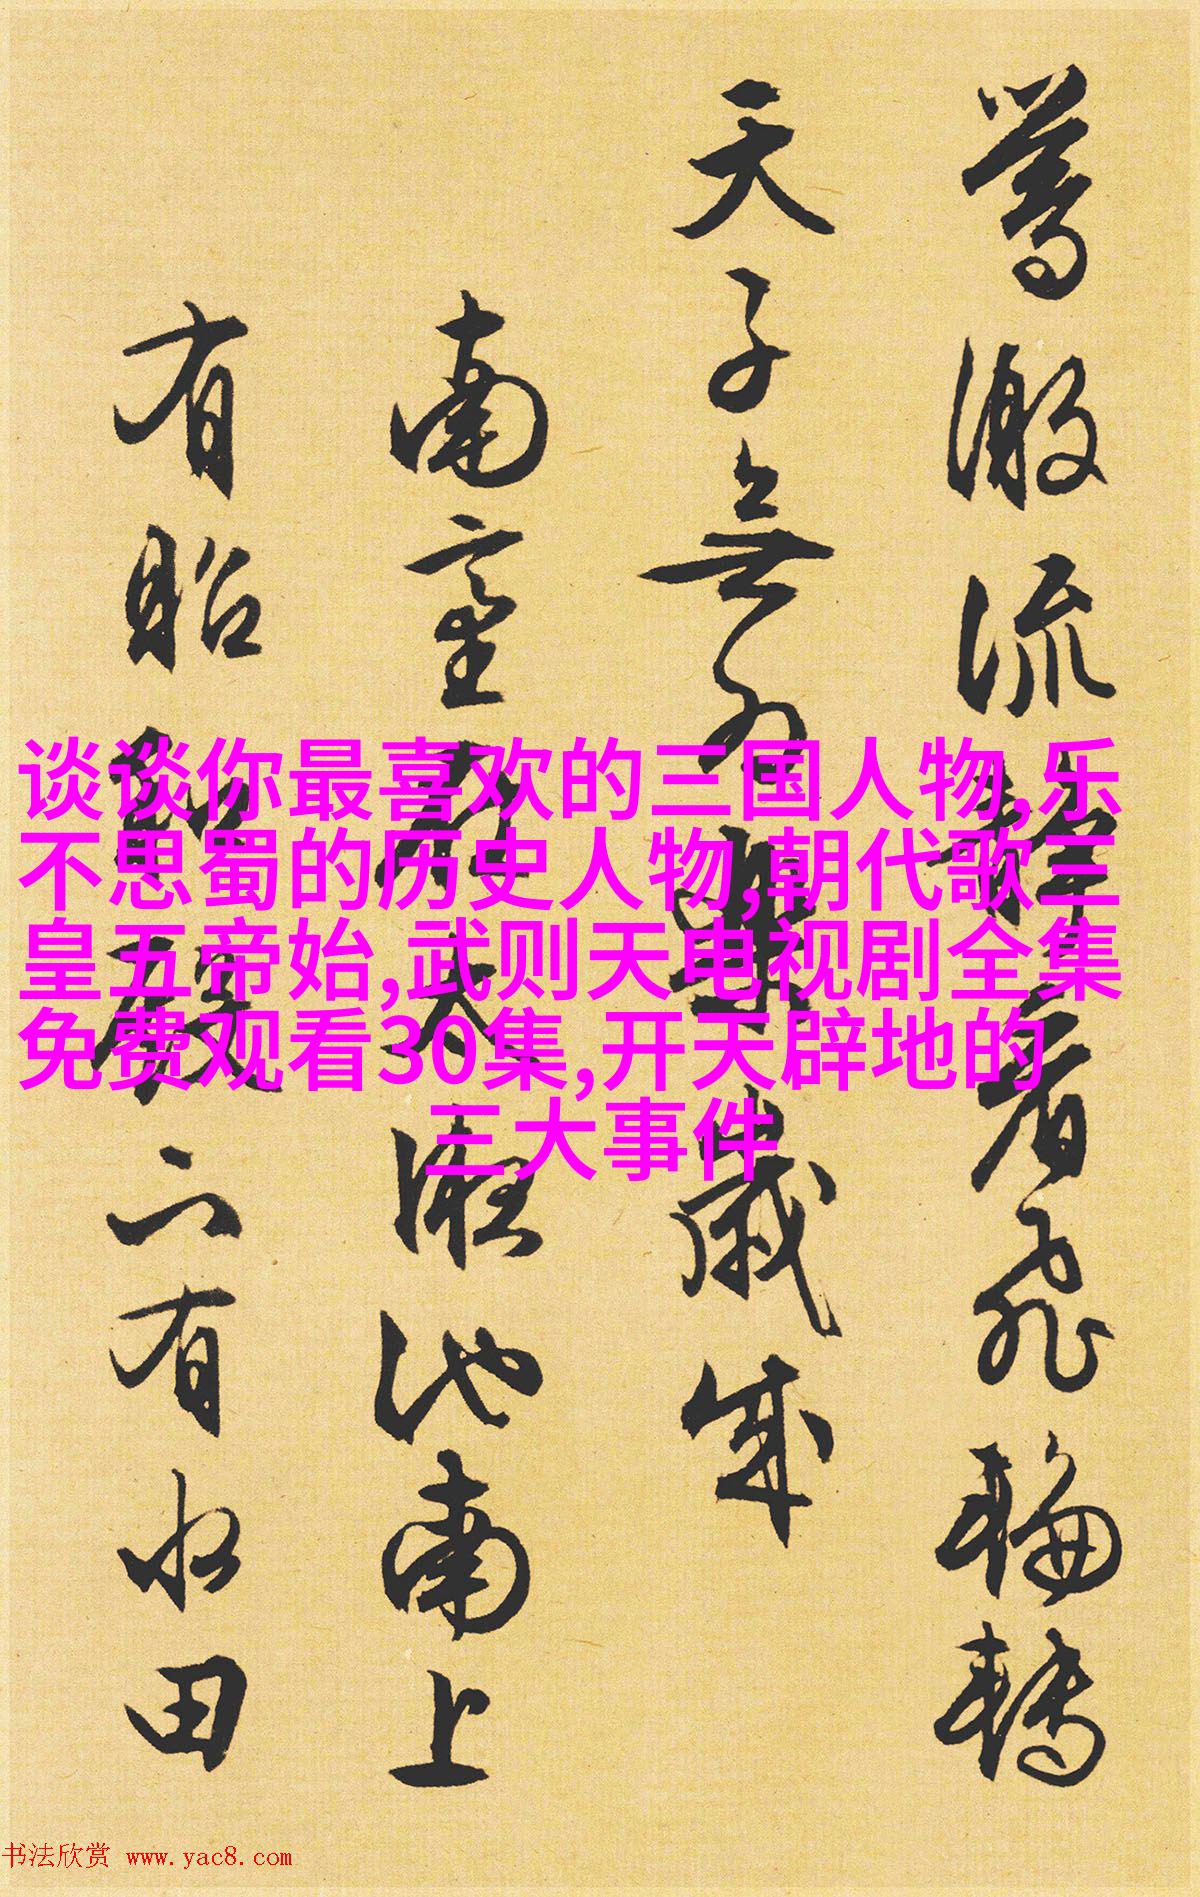 谈谈你最喜欢的三国人物,乐
不思蜀的历史人物,朝代歌三
皇五帝始,武则天电视剧全集
免费观看30集,开天辟地的
三大事件
激流静看飛輪轉
天子無歲成
南臺大液池南上
有昭殿二有水田
书法欣赏 www.yac8.com